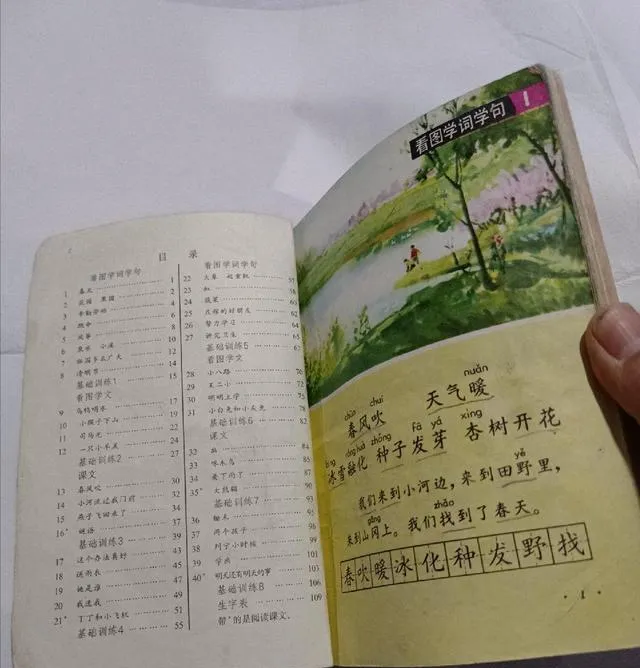 目 录
看图学词学句
1 春天 1
2 花园 果园 2
3 辛勤劳动 4
4
5
6 泉水 小溪
7 祖国多么广大 10
8 清明节 12
基础训练1 15
看图学文
9 乌鸦喝水
10 小猴子下山
11 司马光
12
基础训练2
课文
13 春风吹
14 小河流过我门前
15 燕子飞回来了
16* 谜语
基础训练3
17 这个办法真好
18 送雨衣
19 她是谁
20 我选我
21* 丁丁和小飞机
基础训练4 55
看图学词学句
22 大象
23 虹
24 蔬菜
25 庄稼的好朋友 62
26 努力学习 64
27 讲究卫生 65
基础训练5 67
看图学文
28 小八路 70
29 王二小 72
30 明明上学 76
31 小白兔和小灰兔 78
基础训练6 82
课文
32 画 84
33 啄木鸟 85
34 要下雨了 87
35* 大熊猫
基础训练7
36 锄禾
37 两个孩子
38 列宁小时候
39
40* 明天还有明天的事 101
基础训练8 103
生字表 109
带*的是阅读课文。
看图学词学句 1
chūn chuī nuǎn
春风吹 天气暖
bīng xuě róng huà zhǒng fā yá xìng
冰雪融化 种子发芽 杏树开花
yě
我们来到小河边，来到田野里，
gāng zhǎo
来到山冈上。我们找到了春天。
春吹暖冰化种发野找
·1·